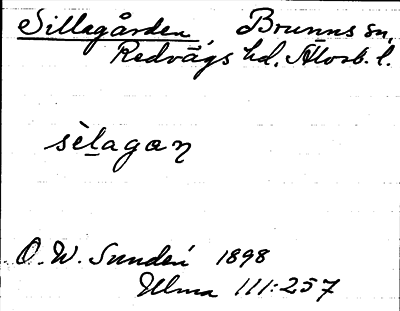 Sillagården, Brunns sn,
Redvägs hd, Älvsb. l.
sèlagan
O. W. Sundén 1898
Ulma 111:257